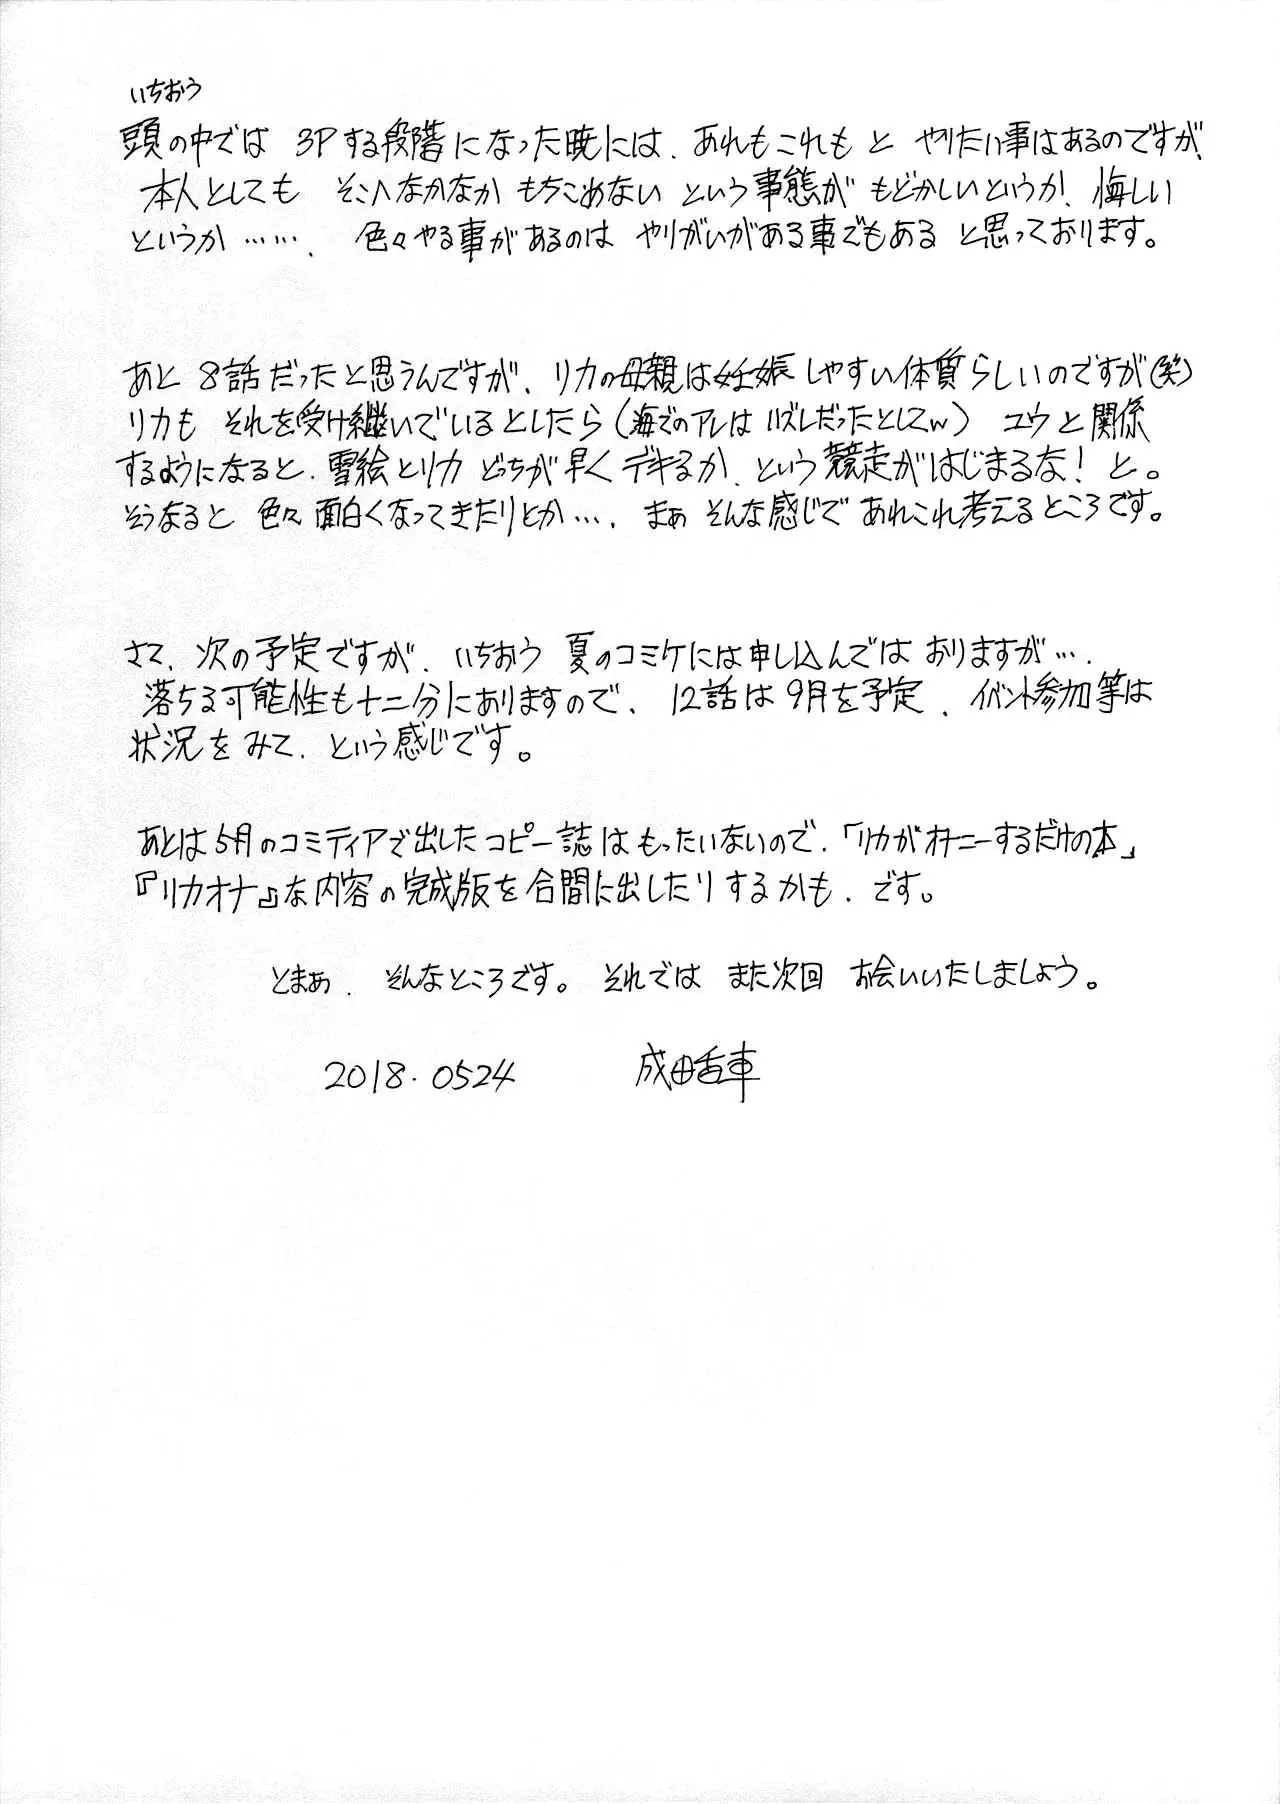 いちおう
頭の中では 3Pする段階になった暁には、あれもこれもと やりたい事はあるのですが、
本人としても そこへなかなか もちこめない という事態が もどかしいというか、悔しい
というか……、 色々やる事があるのは やりがいがある事でもある と思っております。
あと 8話だったと思うんですが、リカの母親は妊娠しやすい体質らしいのですが(笑)
リカも それを受け継いでいるとしたら(海でのアレは ハズレだったとしてw) ユウと関係
するようになると、雪絵とリカ どっちが早くデキるか、という競走がはじまるな！と。
そうなると 色々面白くなってきたりとか…、まぁ そんな感じで あれこれ考えるところです。
さて、次の予定ですが、いちおう 夏のコミケには申し込んではおりますが…、
落ちる可能性も十二分にありますので、12話は9月を予定、イベント参加等は
状況をみて、という感じです。
あとは5月のコミティアで出したコピー誌はもったいないので、「リカがオナニーするだけの本」
『リカオナ』な内容の完成版を合間に出したりするかも、です。
とまぁ、そんなところです。それでは また次回 お会いいたしましょう。
2018.0524 成田舌車